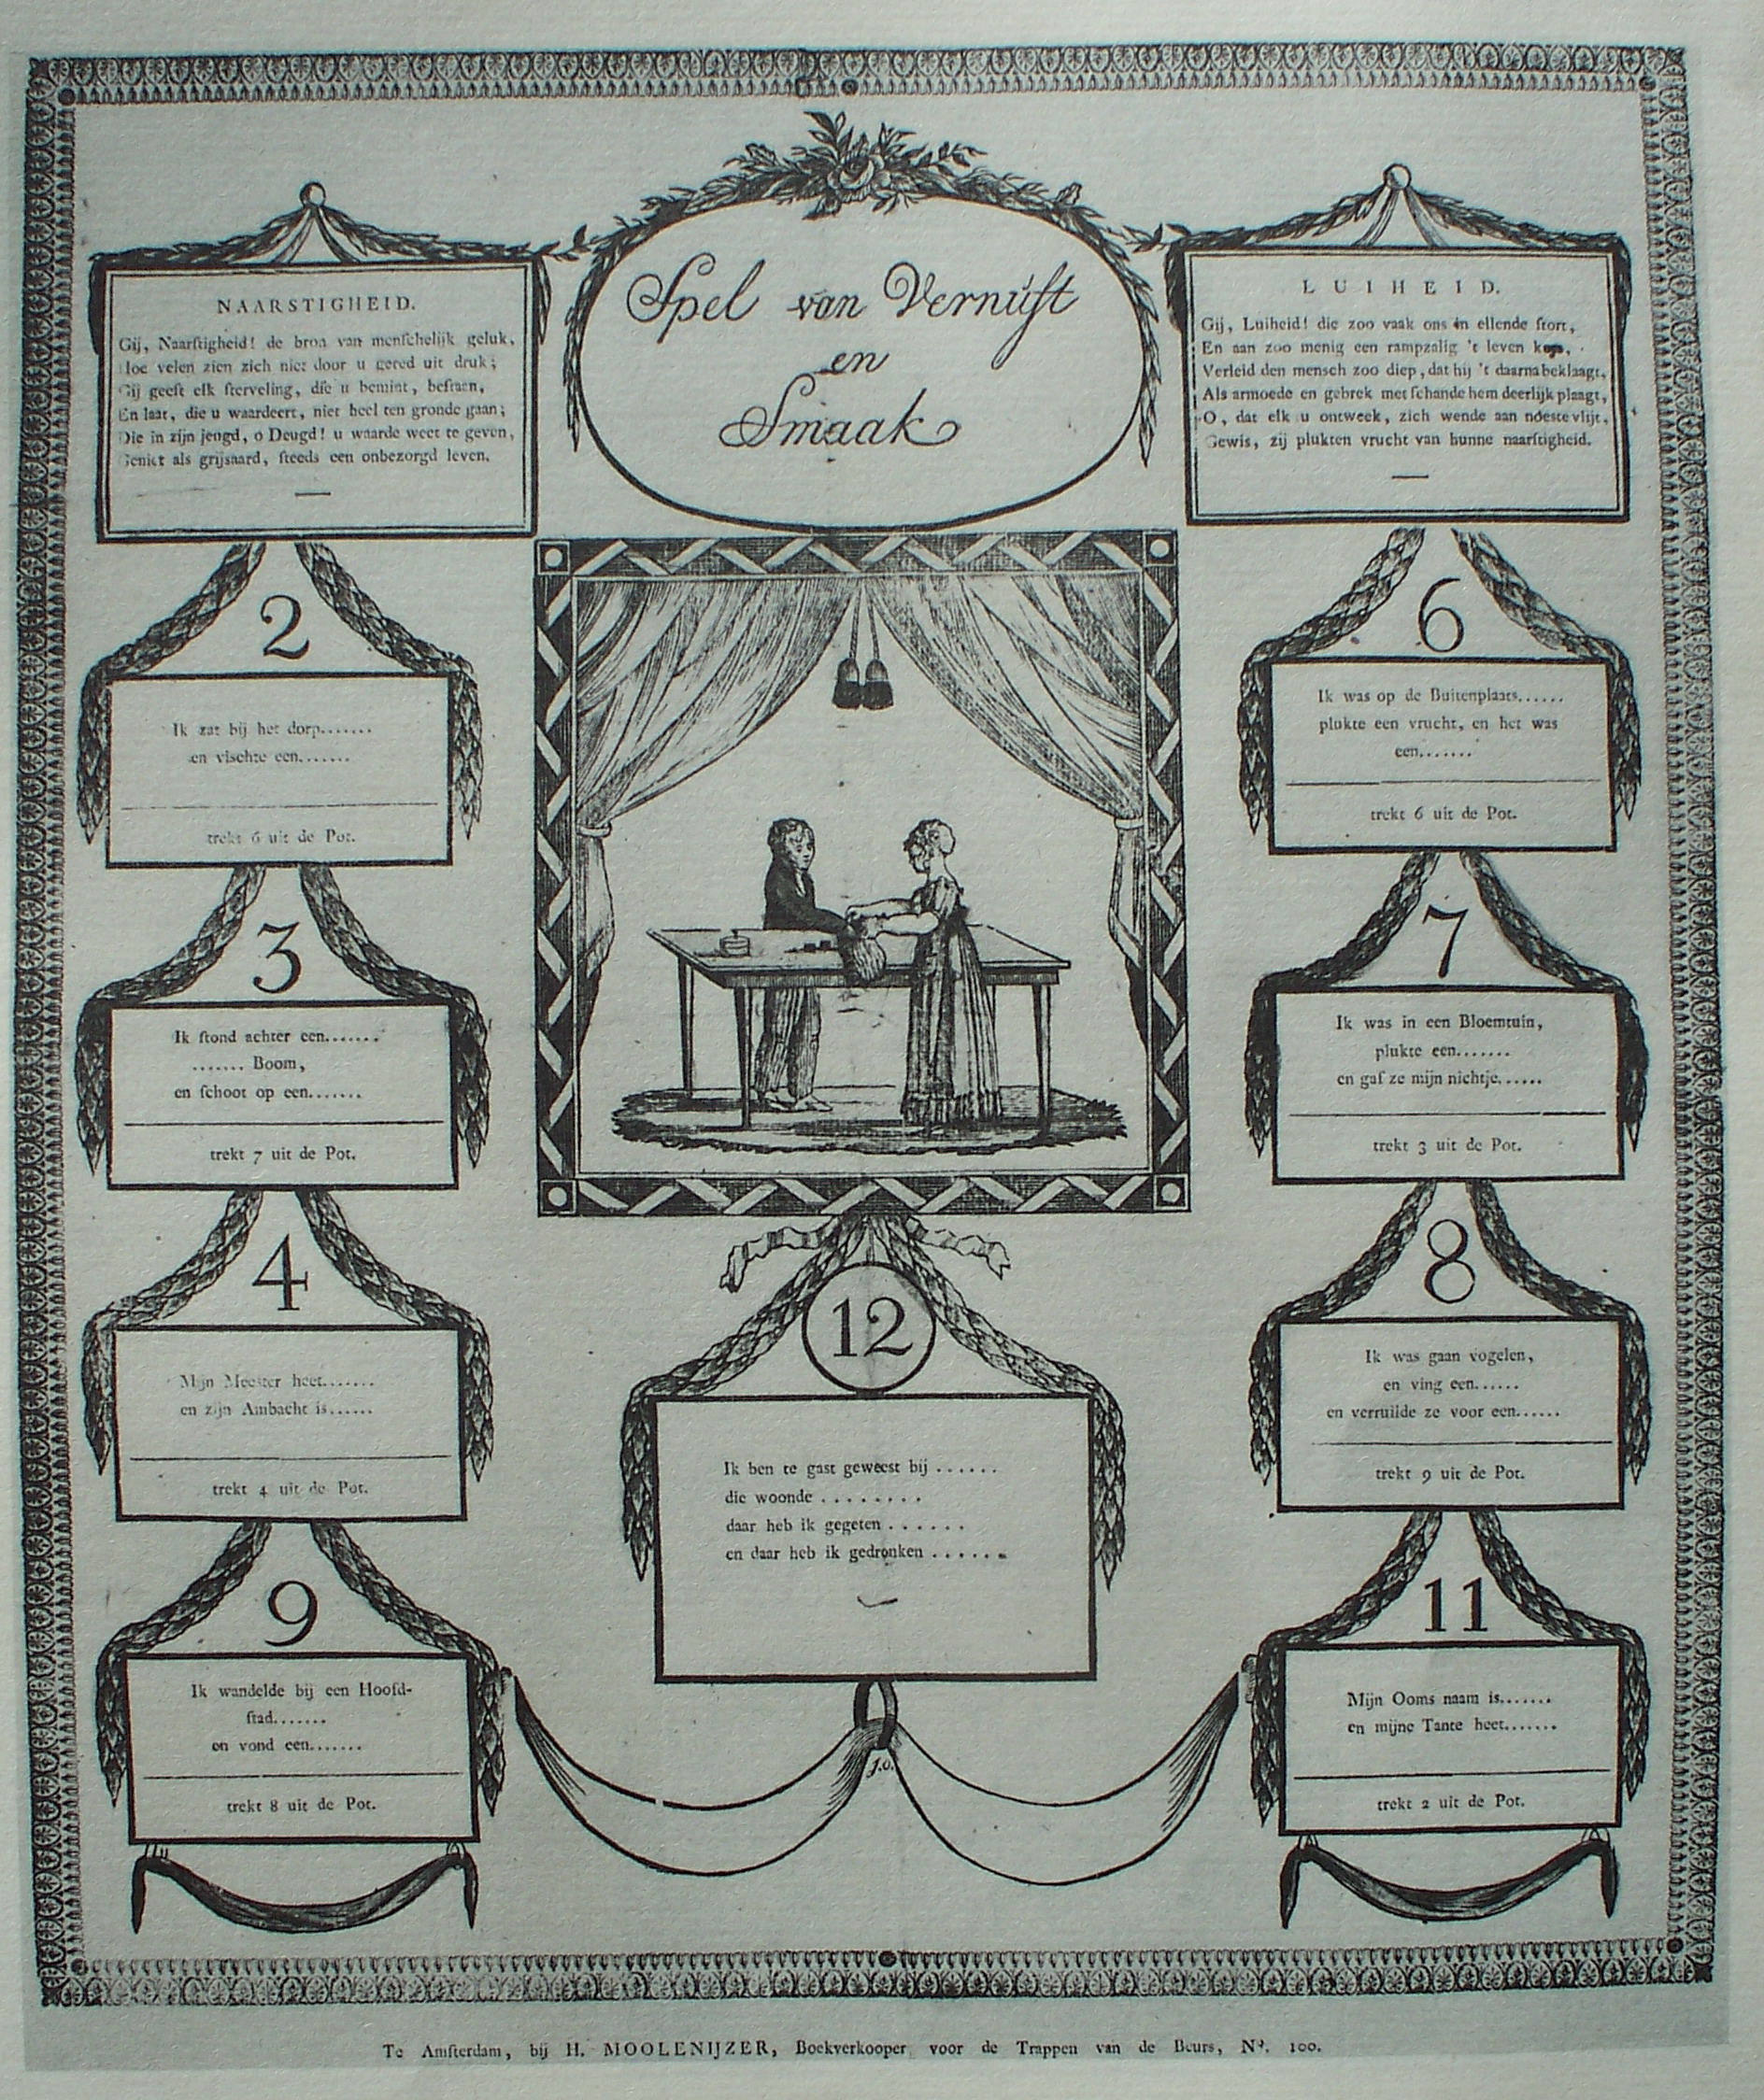 Spel van Vernuft
en
Smaak
NAARSTIGHEID.
Gij, Naarſtigheid! de bron van menſchelijk geluk,
Hoe velen zien zich niet door u gered uit druk;
Gij geeft elk ſterveling, die u bemint, beſtaan,
En laat, die u waardeert, niet heel ten gronde gaan;
Die in zijn jeugd, o Deugd! u waarde weet te geven,
Geniet als grijsaard, ſteeds een onbezorgd leven.
LUIHEID.
Gij, Luiheid! die zoo vaak ons in ellende ſtort,
En aan zoo menig een rampzalig 't leven
Verleid den mensch zoo diep, dat hij 't daarna beklaagt,
Als armoede en gebrek met ſchande hem deerlijk plaagt,
O, dat elk u ontweek, zich wende aan noeste vlijt,
Gewis, zij plukten vrucht van hunne naarſtigheid.
2
Ik zat bij het dorp.......
en vischte een.......
trekt 6 uit de Pot.
3
Ik ſtond achter een.......
....... Boom,
en ſchoot op een.......
trekt 7 uit de Pot.
4
Mijn Meester heet.......
en zijn Ambacht is......
trekt 4 uit de Pot.
9
Ik wandelde bij een Hoofd-
ſtad.......
en vond een.......
trekt 8 uit de Pot.
12
Ik ben te gast geweest bij ......
die woonde ........
daar heb ik gegeten ......
en daar heb ik gedronken ......
J.O.
6
Ik was op de Buitenplaats......
plukte een vrucht, en het was
een.......
trekt 6 uit de Pot.
7
Ik was in een Bloemtuin,
plukte een.......
en gaf ze mijn nichtje......
trekt 3 uit de Pot.
8
Ik was gaan vogelen,
en ving een......
en verruilde ze voor een......
trekt 9 uit de Pot.
11
Mijn Ooms naam is.......
en mijne Tante heet.......
trekt 2 uit de Pot.
Te Amſterdam, bij H. MOOLENIJZER, Boekverkooper voor de Trappen van de Beurs, Nº. 100.